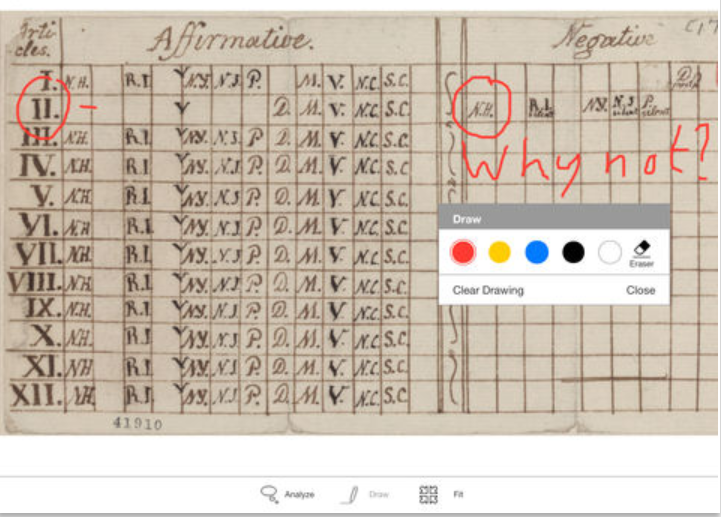 Arti Affirmative. Negative
cles.
I. N.H. R.I. N.Y. N.J. P. M. V. N.C. S.C. D.
II. D. M. V. N.C. S.C. N.H. R.I. N.Y. N.J. P.
silent silent
III. N.H. R.I. N.Y. N.J. P. D. M. V. N.C. S.C.
Why not?
IV. N.H. R.I. N.Y. N.J. P. D. M. V. N.C. S.C.
V. N.H. R.I. N.Y. N.J. P. D. M. V. N.C. S.C.
VI. N.H. R.I. N.Y. N.J. P. D. M. V. N.C. S.C.
VII. N.H. R.I. N.Y. N.J. P. D. M. V. N.C. S.C.
VIII. N.H. R.I. N.Y. N.J. P. D. M. V. N.C. S.C.
IX. N.H. R.I. N.Y. N.J. P. D. M. V. N.C. S.C.
X. N.H. R.I. N.Y. N.J. P. D. M. V. N.C. S.C.
XI. N.H. R.I. N.Y. N.J. P. D. M. V. N.C. S.C.
XII. N.H. R.I. N.Y. N.J. P. D. M. V. N.C. S.C.
41910
Draw
Eraser
Clear Drawing Close
Analyze Draw Fit